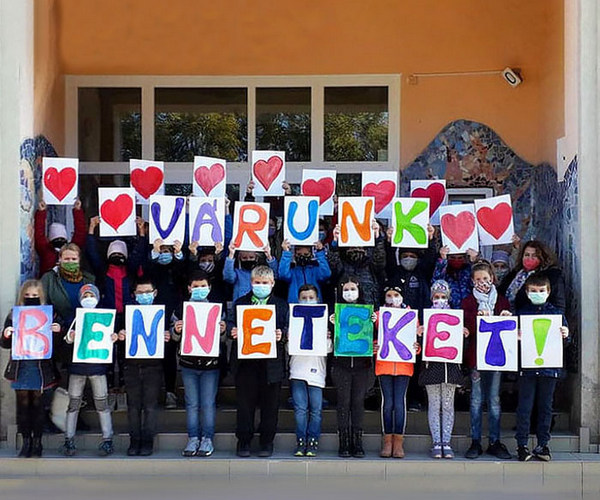 VÁRUNK
BENNETEKET!